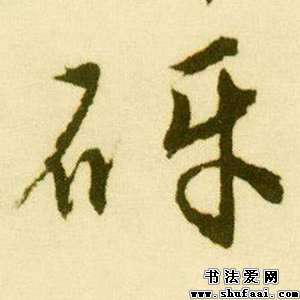 砑
书法爱网
www.shufaai.com